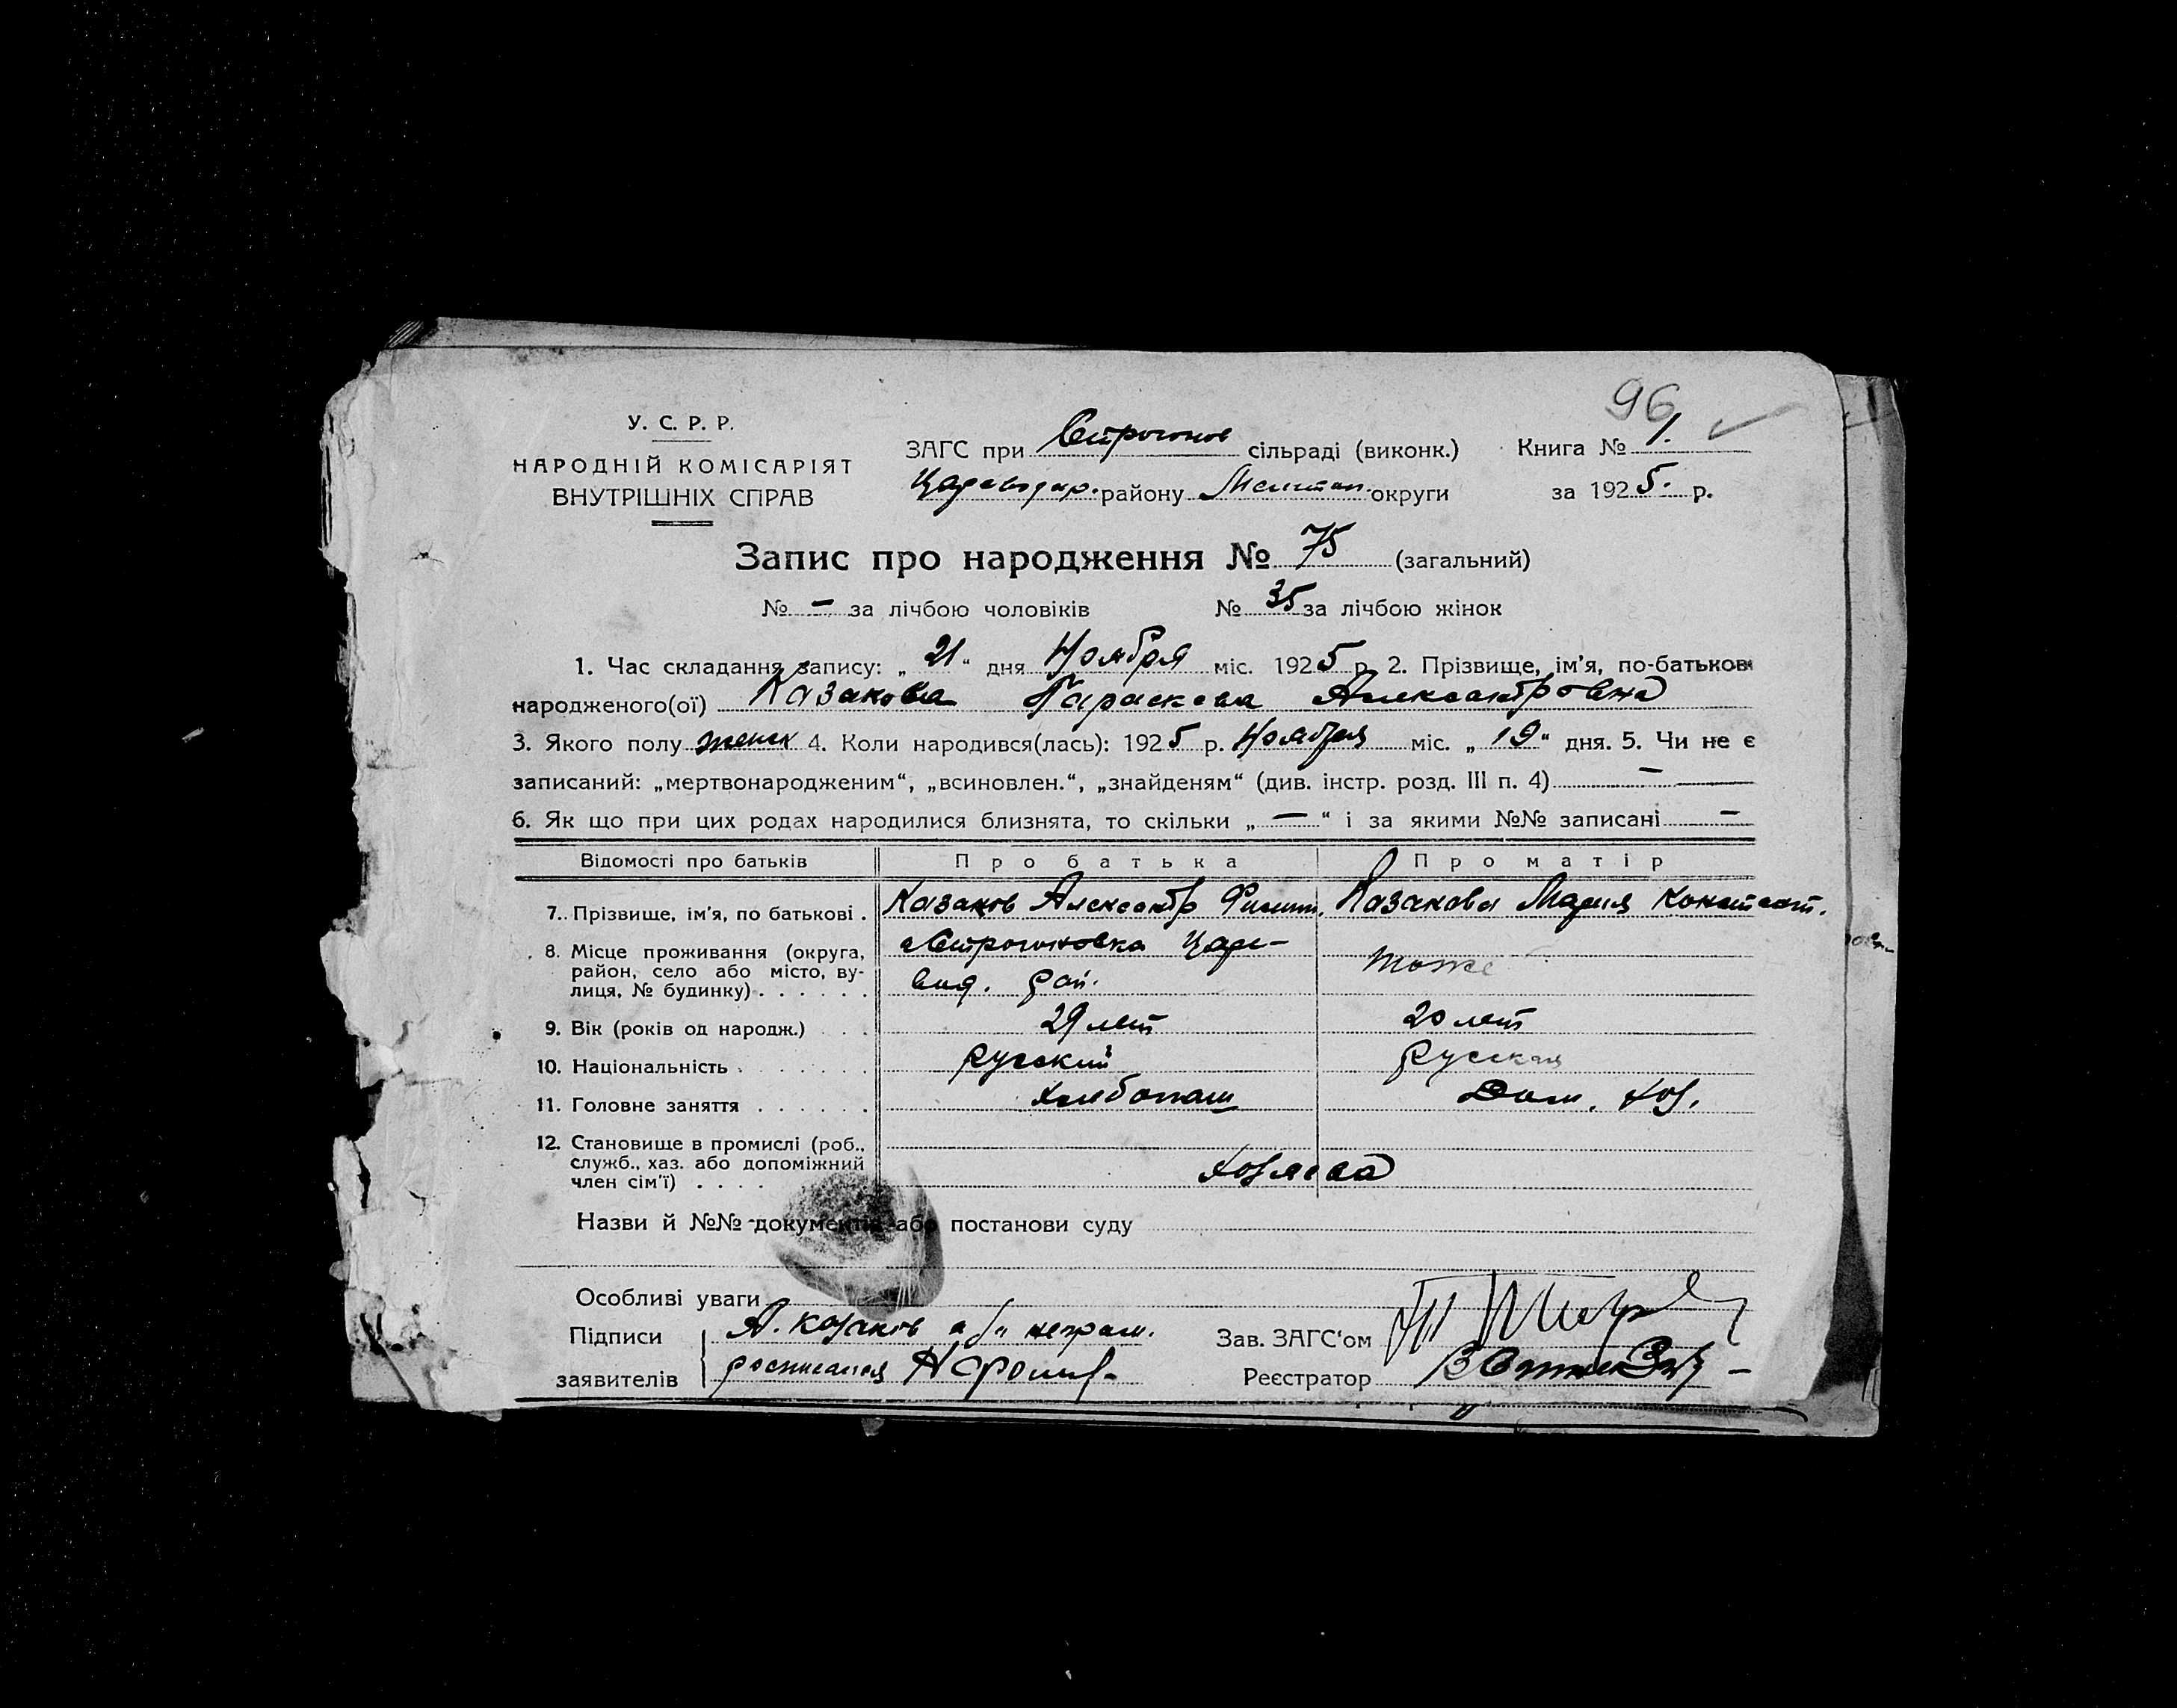 96
У. С. Р. Р.
НАРОДНІЙ КОМІСАРІЯТ
ВНУТРІШНІХ СПРАВ
ЗАГС при Строгонов сільраді (виконк.)
Цареводар. району Мелитоп. округи
Книга № 1.
за 1925. р.
Запис про народження № 75 (загальний)
№ — за лічбою чоловіків № 35 за лічбою жінок
1. Час складання запису: „ 21 “ дня Ноября міс. 1925 р. 2. Прізвище, ім’я, по-батькові
народженого(ої) Казакова Параскева Александровна
3. Якого полу женск 4. Коли народився(лась): 1925 р. Ноября міс. „ 19 “ дня. 5. Чи не є
записаний: „мертвонародженим“, „всиновлен.“, „знайденям“ (див. інстр. розд. III п. 4) —
6. Як що при цих родах народилися близнята, то скільки „ — “ і за якими №№ записані —
Відомості про батьків Про батька Про матір
7. Прізвище, ім’я, по батькові . Казаков Александр Филип. Казакова Мария Констант.
8. Місце проживання (округа, район, село або місто, вулиця, № будинку) . . . . . . с Строгоновка Царе-
вод. рай. тоже
9. Вік (років од народж.) . . . 29 лет 20 лет
10. Національність . . . . . . . русский Русская
11. Головне заняття . . . . . . хлебопаш Дом. хоз.
12. Становище в промислі (роб., служб., хаз. або допоміжний член сім’ї) . . . . хозяева
Назви й №№ документів або постанови суду
Особливі уваги
Підписи А. Козаков а за неграм.
заявителів росписался
Зав. ЗАГС‘ом
Реєстратор